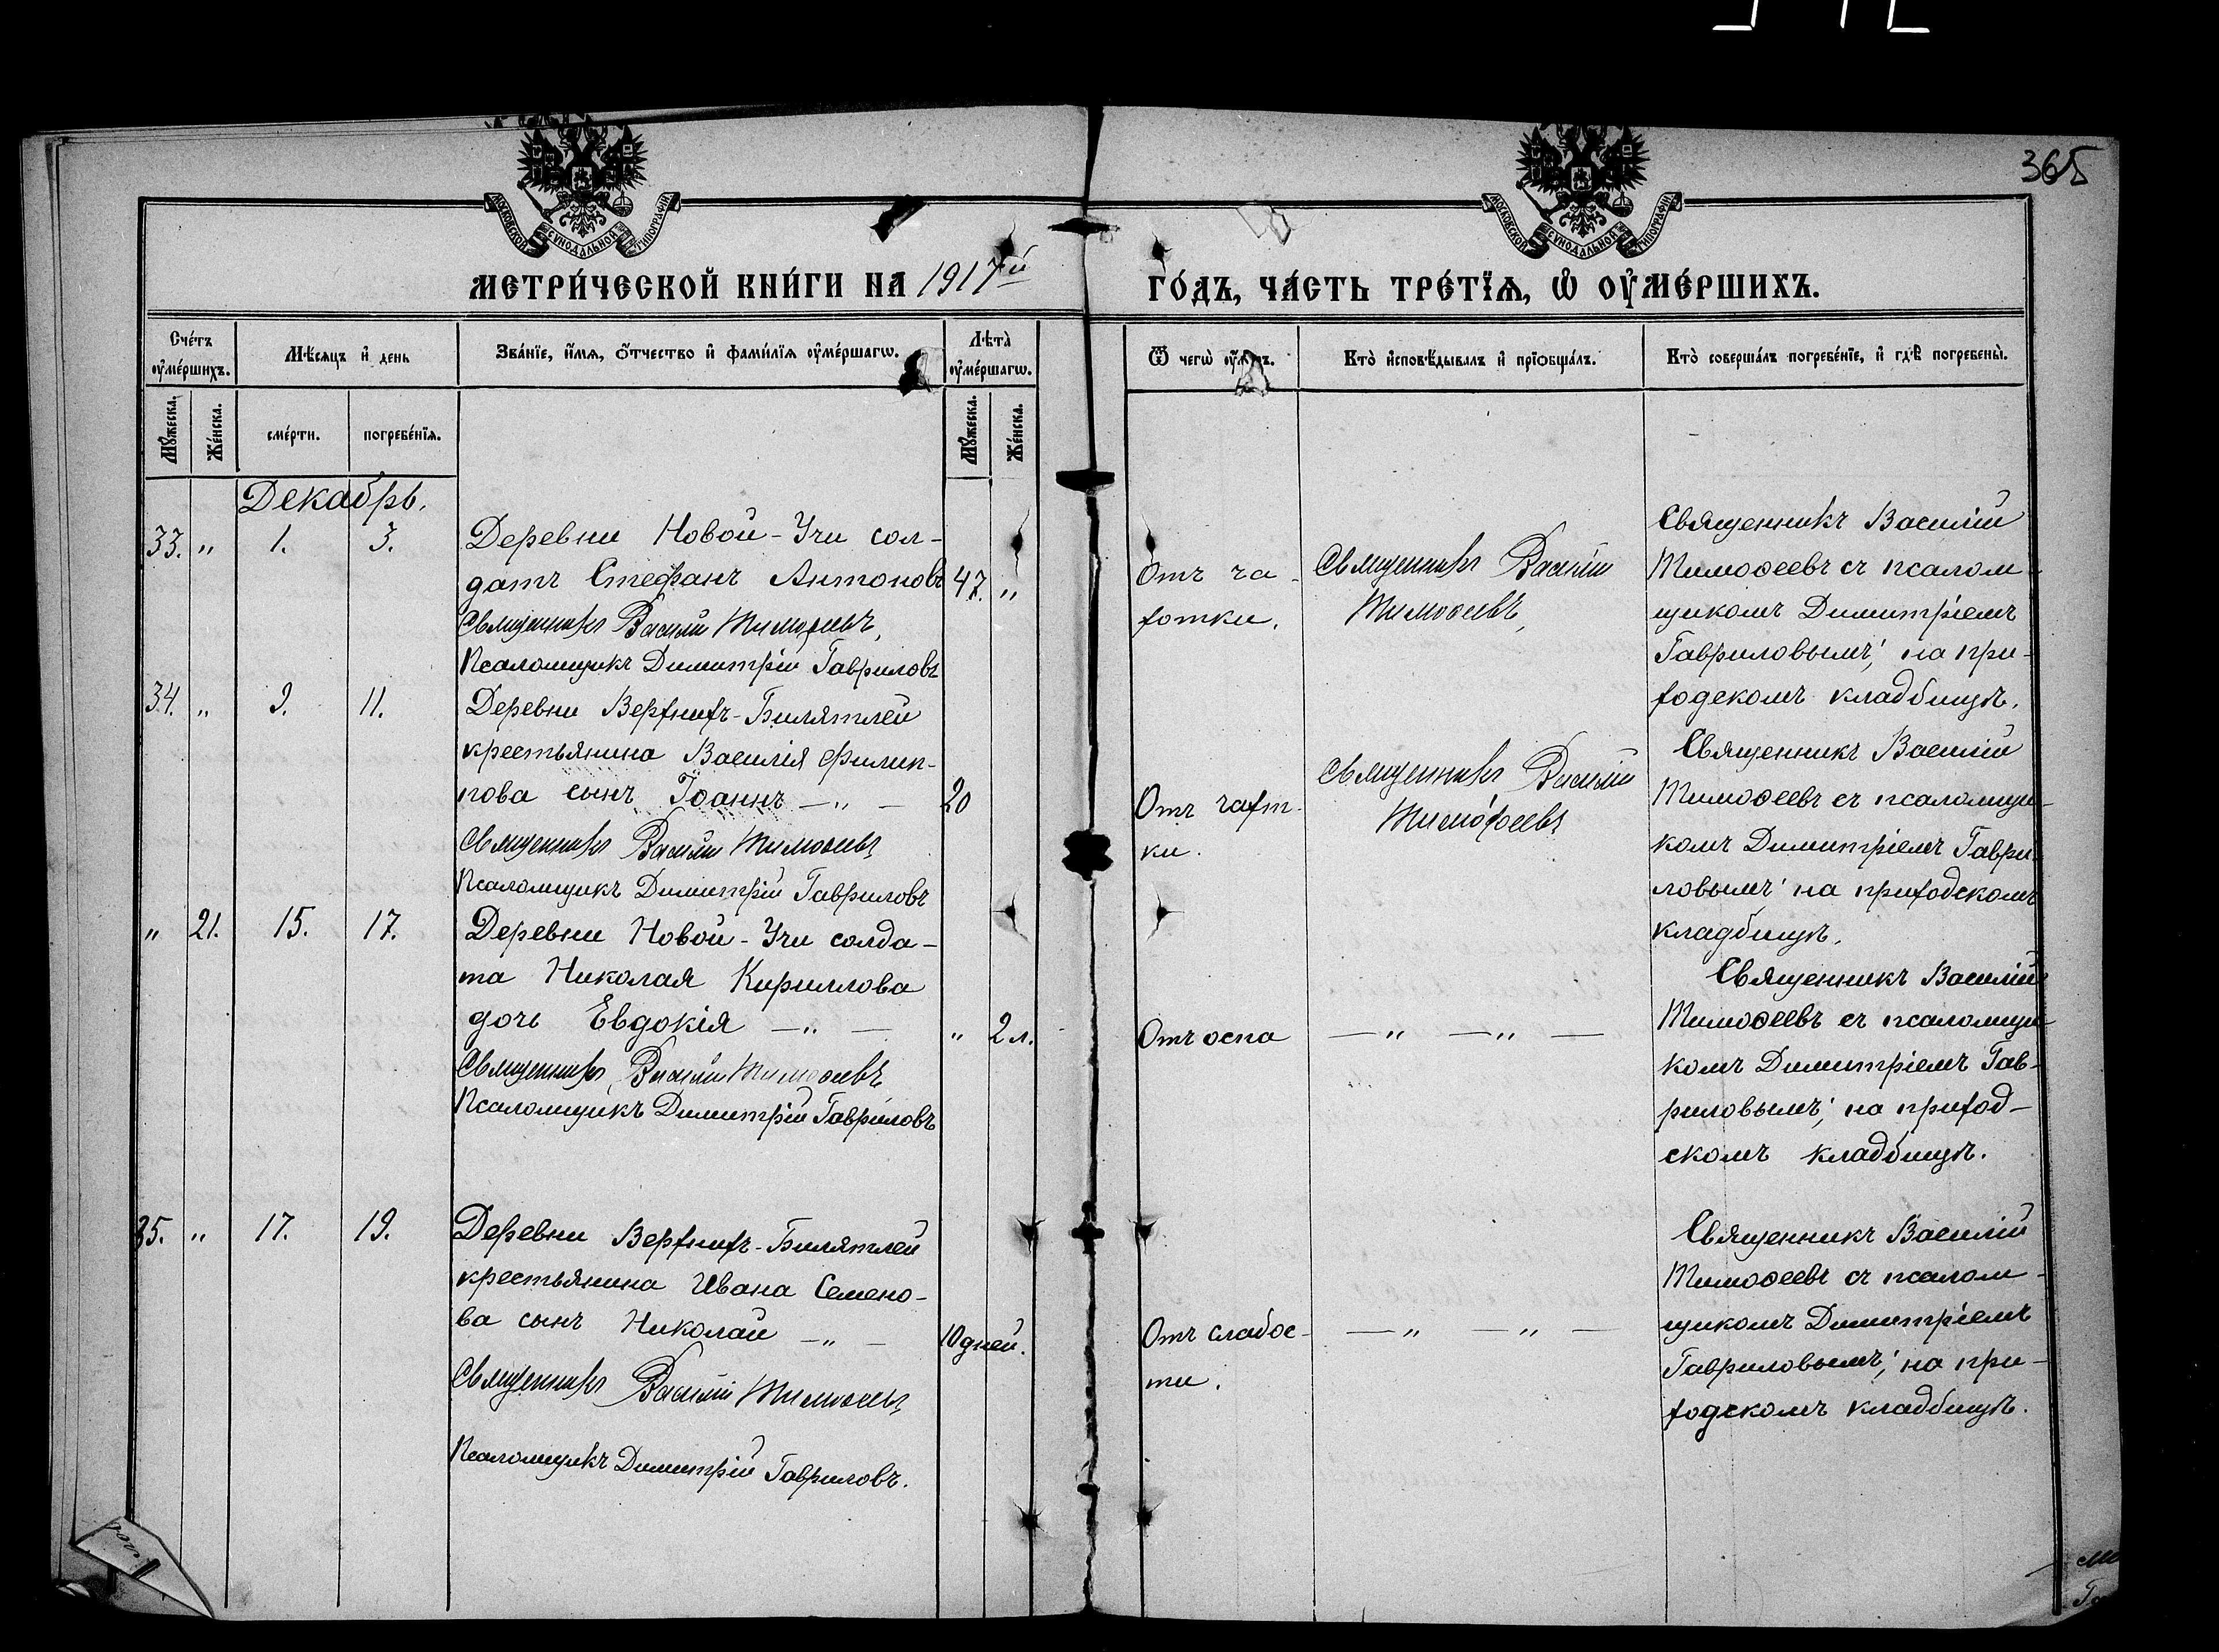 365
МОСКОВСКОЙ СѴНОДАЛЬНОЙ ТИПОГРАФІИ
МОСКОВСКОЙ СѴНОДАЛЬНОЙ ТИПОГРАФІИ
МЕТРИ́ЧЕСКОЙ КНИ́ГИ НА 1917й
ГО́ДЪ, ЧА́СТЬ ТРЕ́ТЇѦ, Ѡ҆ ОУ҆МЕ́РШИХЪ.
Сче́тъ оу҆ме́ршихъ.
Мѣ́сѧцъ и҆ день
Зва́нїе, и҆́мѧ, ѻ҆́тчество и҆ фами́лїѧ оу҆ме́ршагѡ.
Лѣта̀ оу҆ме́ршагѡ.
Ѿ чегѡ̀ оу҆́меръ.
Кто̀ и҆сповѣ́дывалъ и҆ прїѡбща́лъ.
Кто̀ соверша́лъ погребе́нїе, и҆ гдѣ̀ погребены̀.
Мꙋ́жеска.
Же́нска.
сме́рти.
погребе́нїѧ.
Мꙋ́жеска.
Же́нска.
Декабрь.
33. " 1. 3.
Деревни Новой-Учи сол-
датъ Стефанъ Антоновъ 47. "
Священникъ Василій Тимоѳеевъ,
Псаломщикъ Димитрій Гавриловъ
Отъ ча-
хотки.
Священникъ Василій
Тимоѳеевъ,
Священникъ Василій
Тимоѳеевъ съ псалом-
щикомъ Димитріемъ
Гавриловымъ; на при-
ходскомъ кладбищѣ.
34. " 9. 11.
Деревни Верхнихъ-Билятлей
крестьянина Василія Филип-
пова сынъ Іоаннъ — " — 20
Священникъ Василій Тимоѳеевъ
Псаломщикъ Димитрій Гавриловъ
Отъ чахт-
ки.
Священникъ Василій
Тимоѳеевъ
Священникъ Василій
Тимоѳеевъ съ псаломщи-
комъ Димитріемъ Гаври-
ловымъ; на приходскомъ
кладбищѣ.
" 21. 15. 17.
Деревни Новой-Учи солда-
та Николая Кириллова
дочь Евдокія — " — " 2 л.
Священникъ Василій Тимоѳеевъ
Псаломщикъ Димитрій Гавриловъ
Отъ оспа
— " — " —
Священникъ Василій
Тимоѳеевъ съ псаломщи-
комъ Димитріемъ Гав-
риловымъ; на приход-
скомъ кладбищѣ.
35. " 17. 19.
Деревни Верхнихъ-Билятлей
крестьянина Ивана Семено-
ва сынъ Николай — " — 10 дней.
Священникъ Василій Тимоѳеевъ
Псаломщикъ Димитрій Гавриловъ.
Отъ слабос-
ти.
— " — " —
Священникъ Василій
Тимоѳеевъ съ псалом-
щикомъ Димитріемъ
Гавриловымъ; на при-
ходскомъ кладбищѣ.